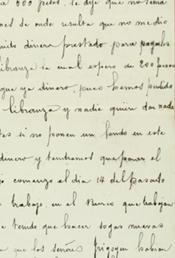 300 pesos. te dije que no seria
nos de onde resulta que no me dio
dinero prestado para pagarles
libranza te cual espero de 200 pesos
que ya dinero, pues hemos pedido
libranza y nadie quiere dar nada
tes si no ponen un fondo en este
dinero y tendramos que parar el
jo comenzo el dia 14 del pasado
trabajo, en el Nuevo que trabajan
tendo que hacer sogas nuevas
que los señores Frigogen habian